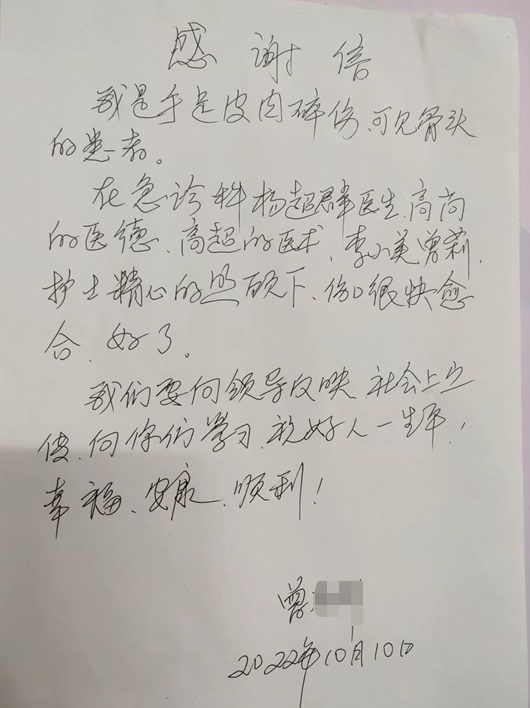 感谢信
我是手是皮肉碎伤,可见骨头
的患者。
在急诊科杨超群医生,高尚
的医德,高超的医术,李小美曾莉,
护士精心的照顾下,伤口很快愈
合,好了。
我们要向领导反映社会上立
传,向你们学习,祝好人一生平,
幸福、安康、顺利!
曾
2022年10月10日